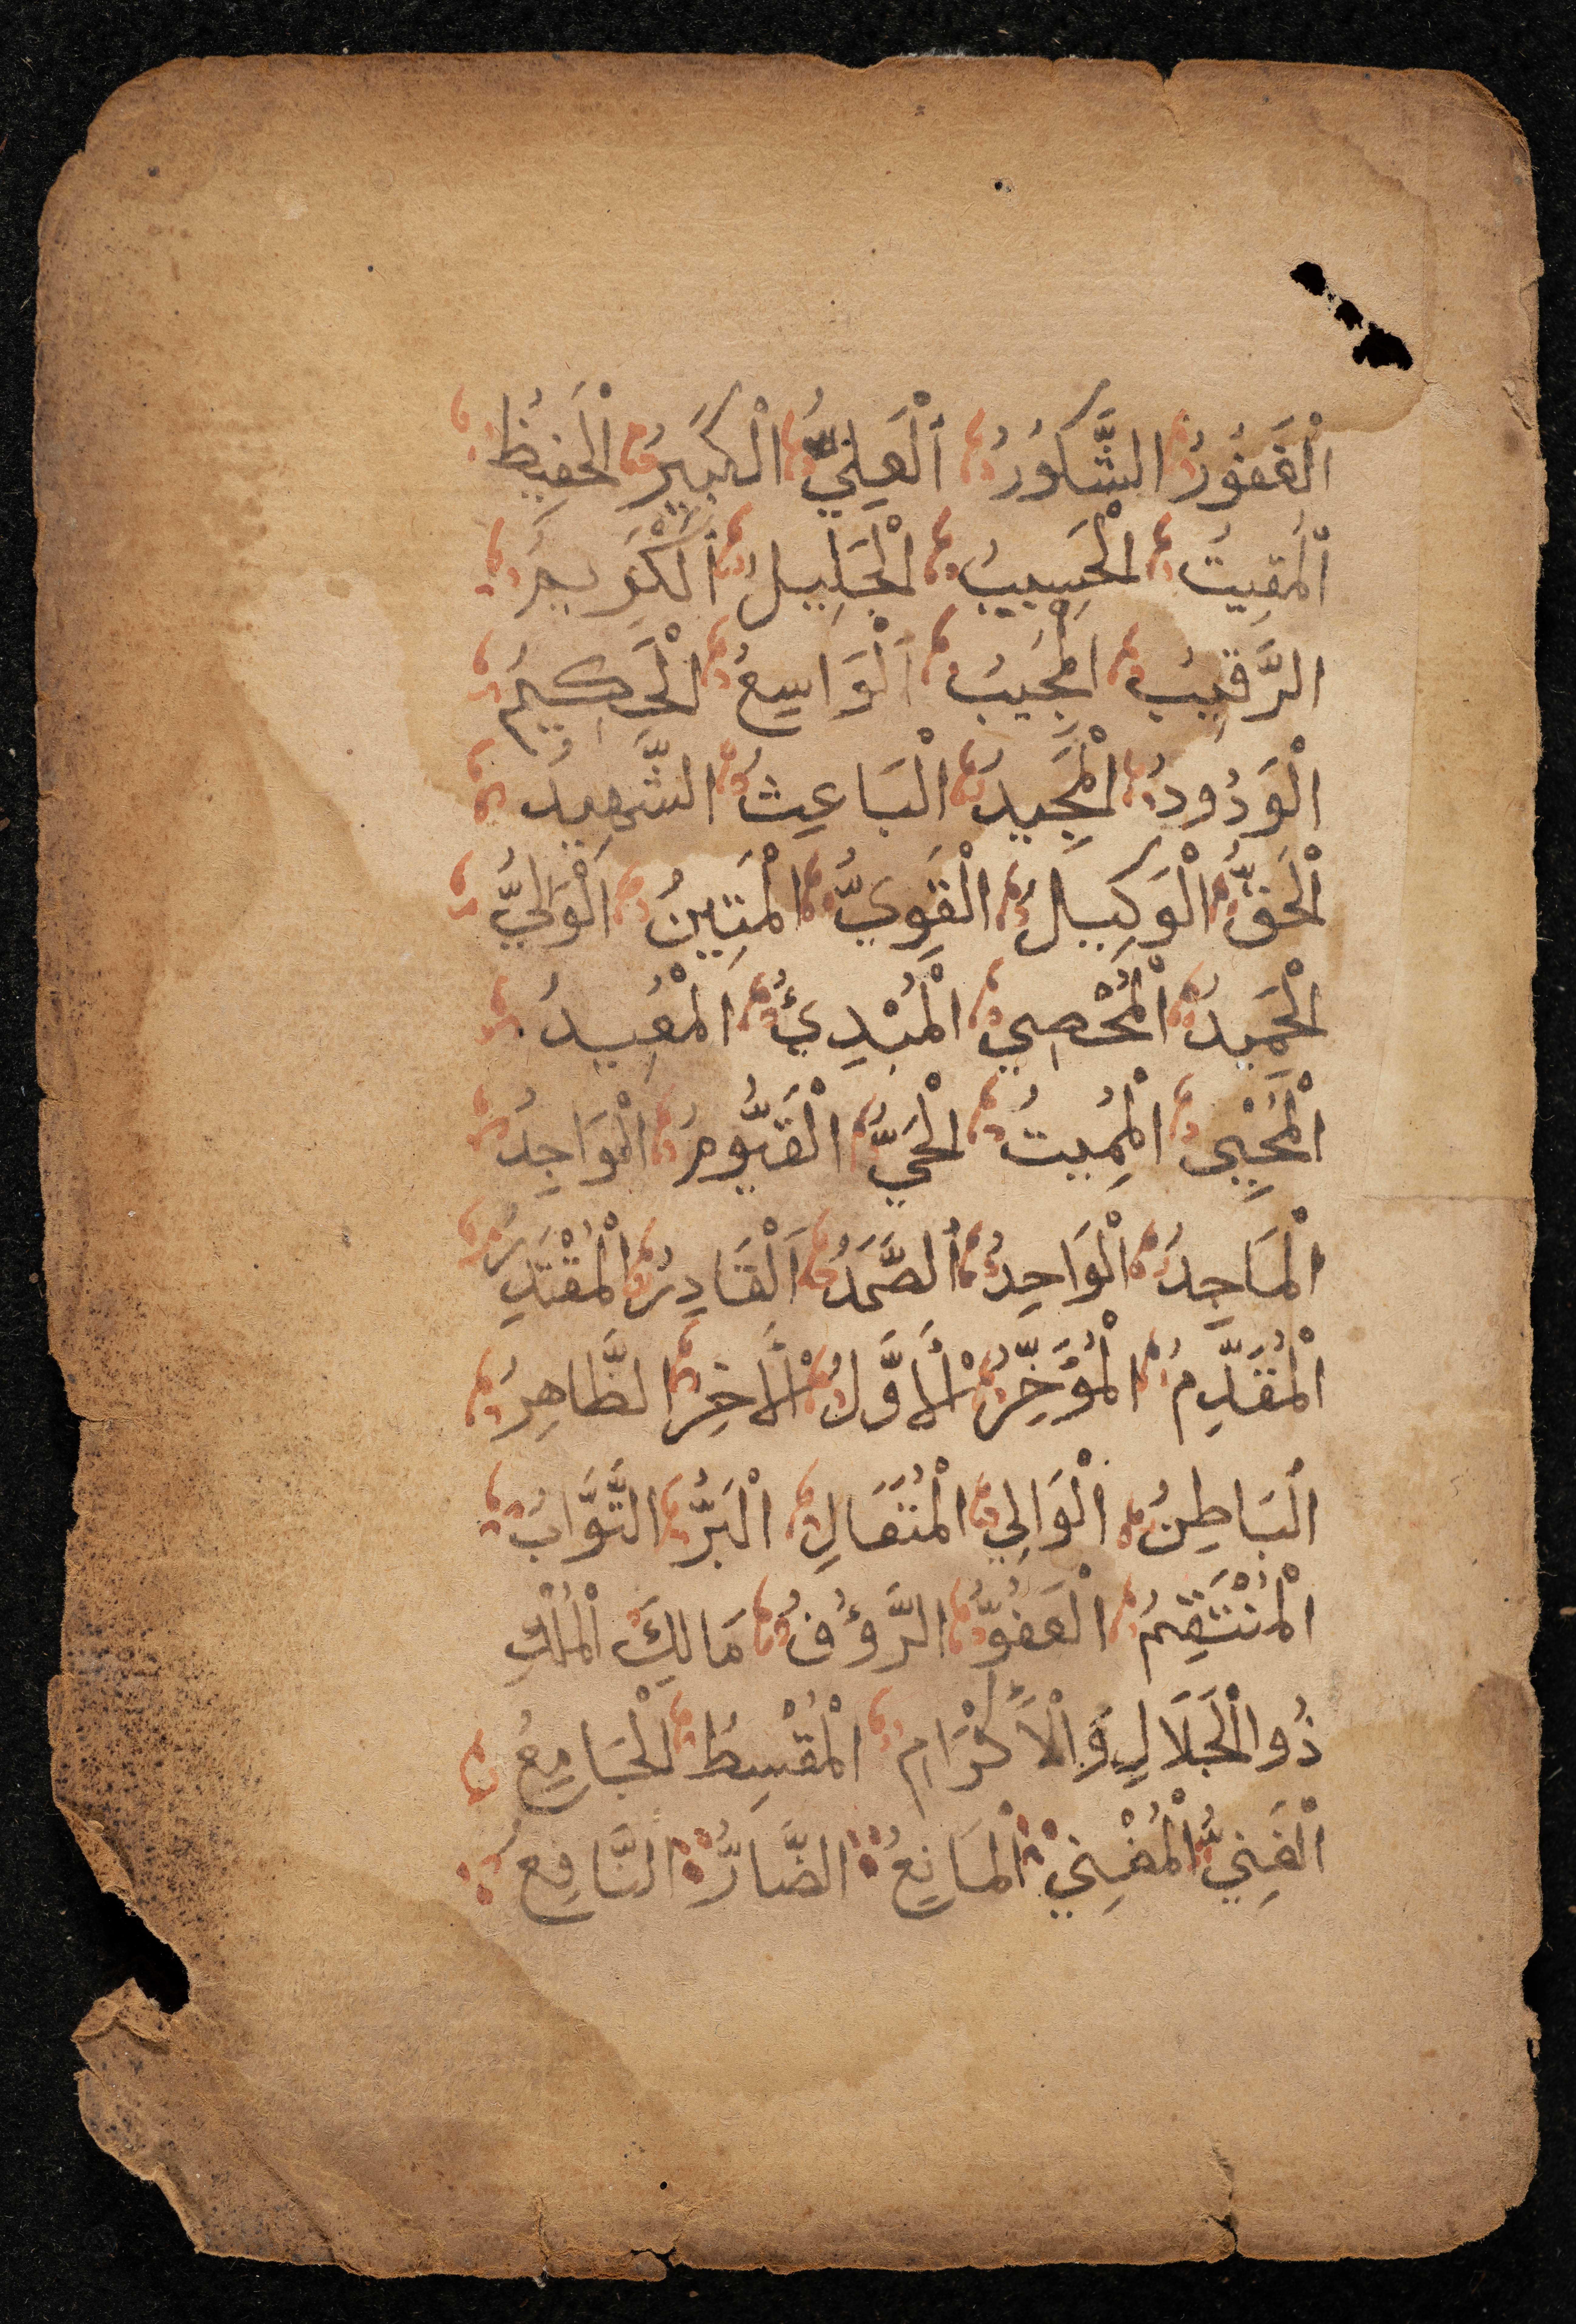 الْغَفُورُ الشَّكُورُ الْعَلِيُّ الْكَبِيرُ الْحَفِيظُ
الْمُقِيتُ الْحَسِيبُ الْجَلِيلُ الْكَرِيمُ
الرَّقِيبُ الْمُجِيبُ الْوَاسِعُ الْحَكِيمُ
الْوَدُودُ الْمَجِيدُ الْبَاعِثُ الشَّهِيدُ
الْحَقُّ الْوَكِيلُ الْقَوِيُّ الْمَتِينُ الْوَلِيُّ
الْحَمِيدُ الْمُحْصِي الْمُبْدِئُ الْمُعِيدُ
الْمُحْيِى الْمُمِيتُ الْحَيُّ الْقَيُّومُ الْوَاجِدُ
الْمَاجِدُ الْوَاحِدُ الصَّمَدُ اَلْقَادِرُ الْمُقْتَدِرُ
الْمُقَدِّمُ الْمُؤَخِّرُ الْأَوَّلُ الْأَخِرُ الظَّاهِرُ
الْبَاطِنُ الْوَالِي الْمُتَعَالِ الْبَرُّ التَّوَّابُ
الْمُنْتَقِمُ الْعَفُوُّ الرَّؤُفُ مَالِكَ الْمُلْكِ
ذُوالْجَلَالِ وَالْاَكْرَامِ الْمُقْسِطُ الْجَامِعُ
الْغَنِيُّ الْمُغْنِي الْمَانِعُ الضَّارُّ النَّافِعُ